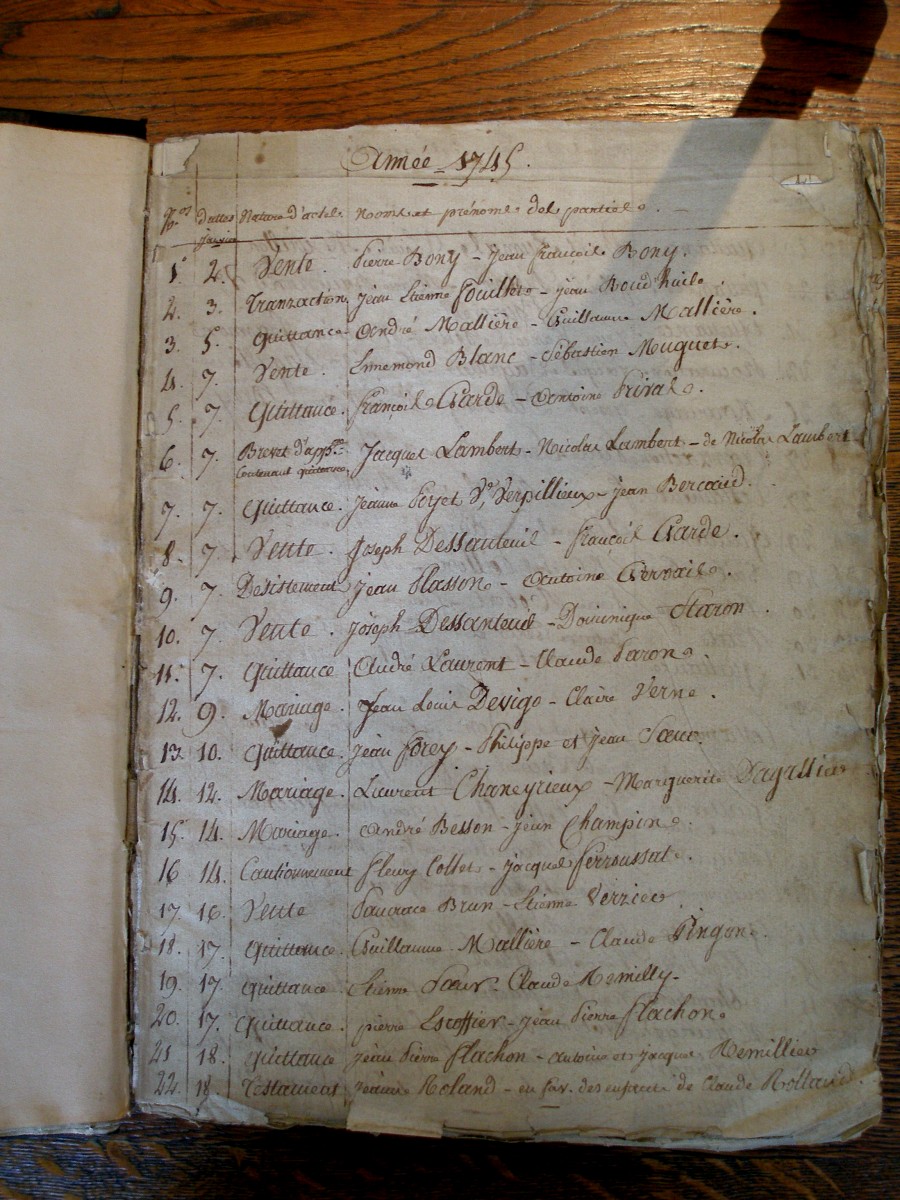 Année 1745.
Nos dattes Nature d'actes Noms et prénoms des parties.
janvier
1. 2. Vente. Pierre Bony - Jean françois Bony.
2. 3. Tranzaction. Jean Etienne fouillet - jean
3. 5. Quittance. André Mallière - Guillaume Mallière.
4. 7. Vente. Ennemond Blanc - Sébastien Muguet.
5. 7. Quittance. françois Garde - Antoine Prival.
6. 7. Brevet d'appge. Jacques Lambert - Nicolas Lambert - de Nicolas Lambert
Contenant quittance
7. 7. Quittance. Jeanne Poyet Ve Verpillieux - jean Bercoud.
8. 7. Vente. Joseph Dessauteuil - françois Garde.
9. 7. Desistement Jean Plasson - Antoine Gervais.
10. 7. Vente. Joseph Dessanteuil - Dominique Staron.
11. 7. Quittance André Laurent - Claude Paron.
12. 9. Mariage. Jean Louis Devigo - Claire Verne.
13. 10. Quittance. jean forey - Philippe et jean
14. 12. Mariage. Laurent Chaneyrieux - Marguerite Dagallier
15. 14. Mariage. André Besson - jean Champin.
16 14. Cautionnement Fleury Collet - jacques ferroussat.
17. 16. Vente Pancrace Brun - Etienne
18. 17. Quittance. Guillaume Mallière - Claude Pingon.
19. 17. Quittance Etienne - Claude Remilly.
20. 17. Quittance. pierre Escoffier - jean Pierre flachon.
21 18. Quittance jean Pierre flachon - antoine et jacques Remillier
22. 18. Testament Jeanne Roland - en fav. des enfants de Claude Rolland.